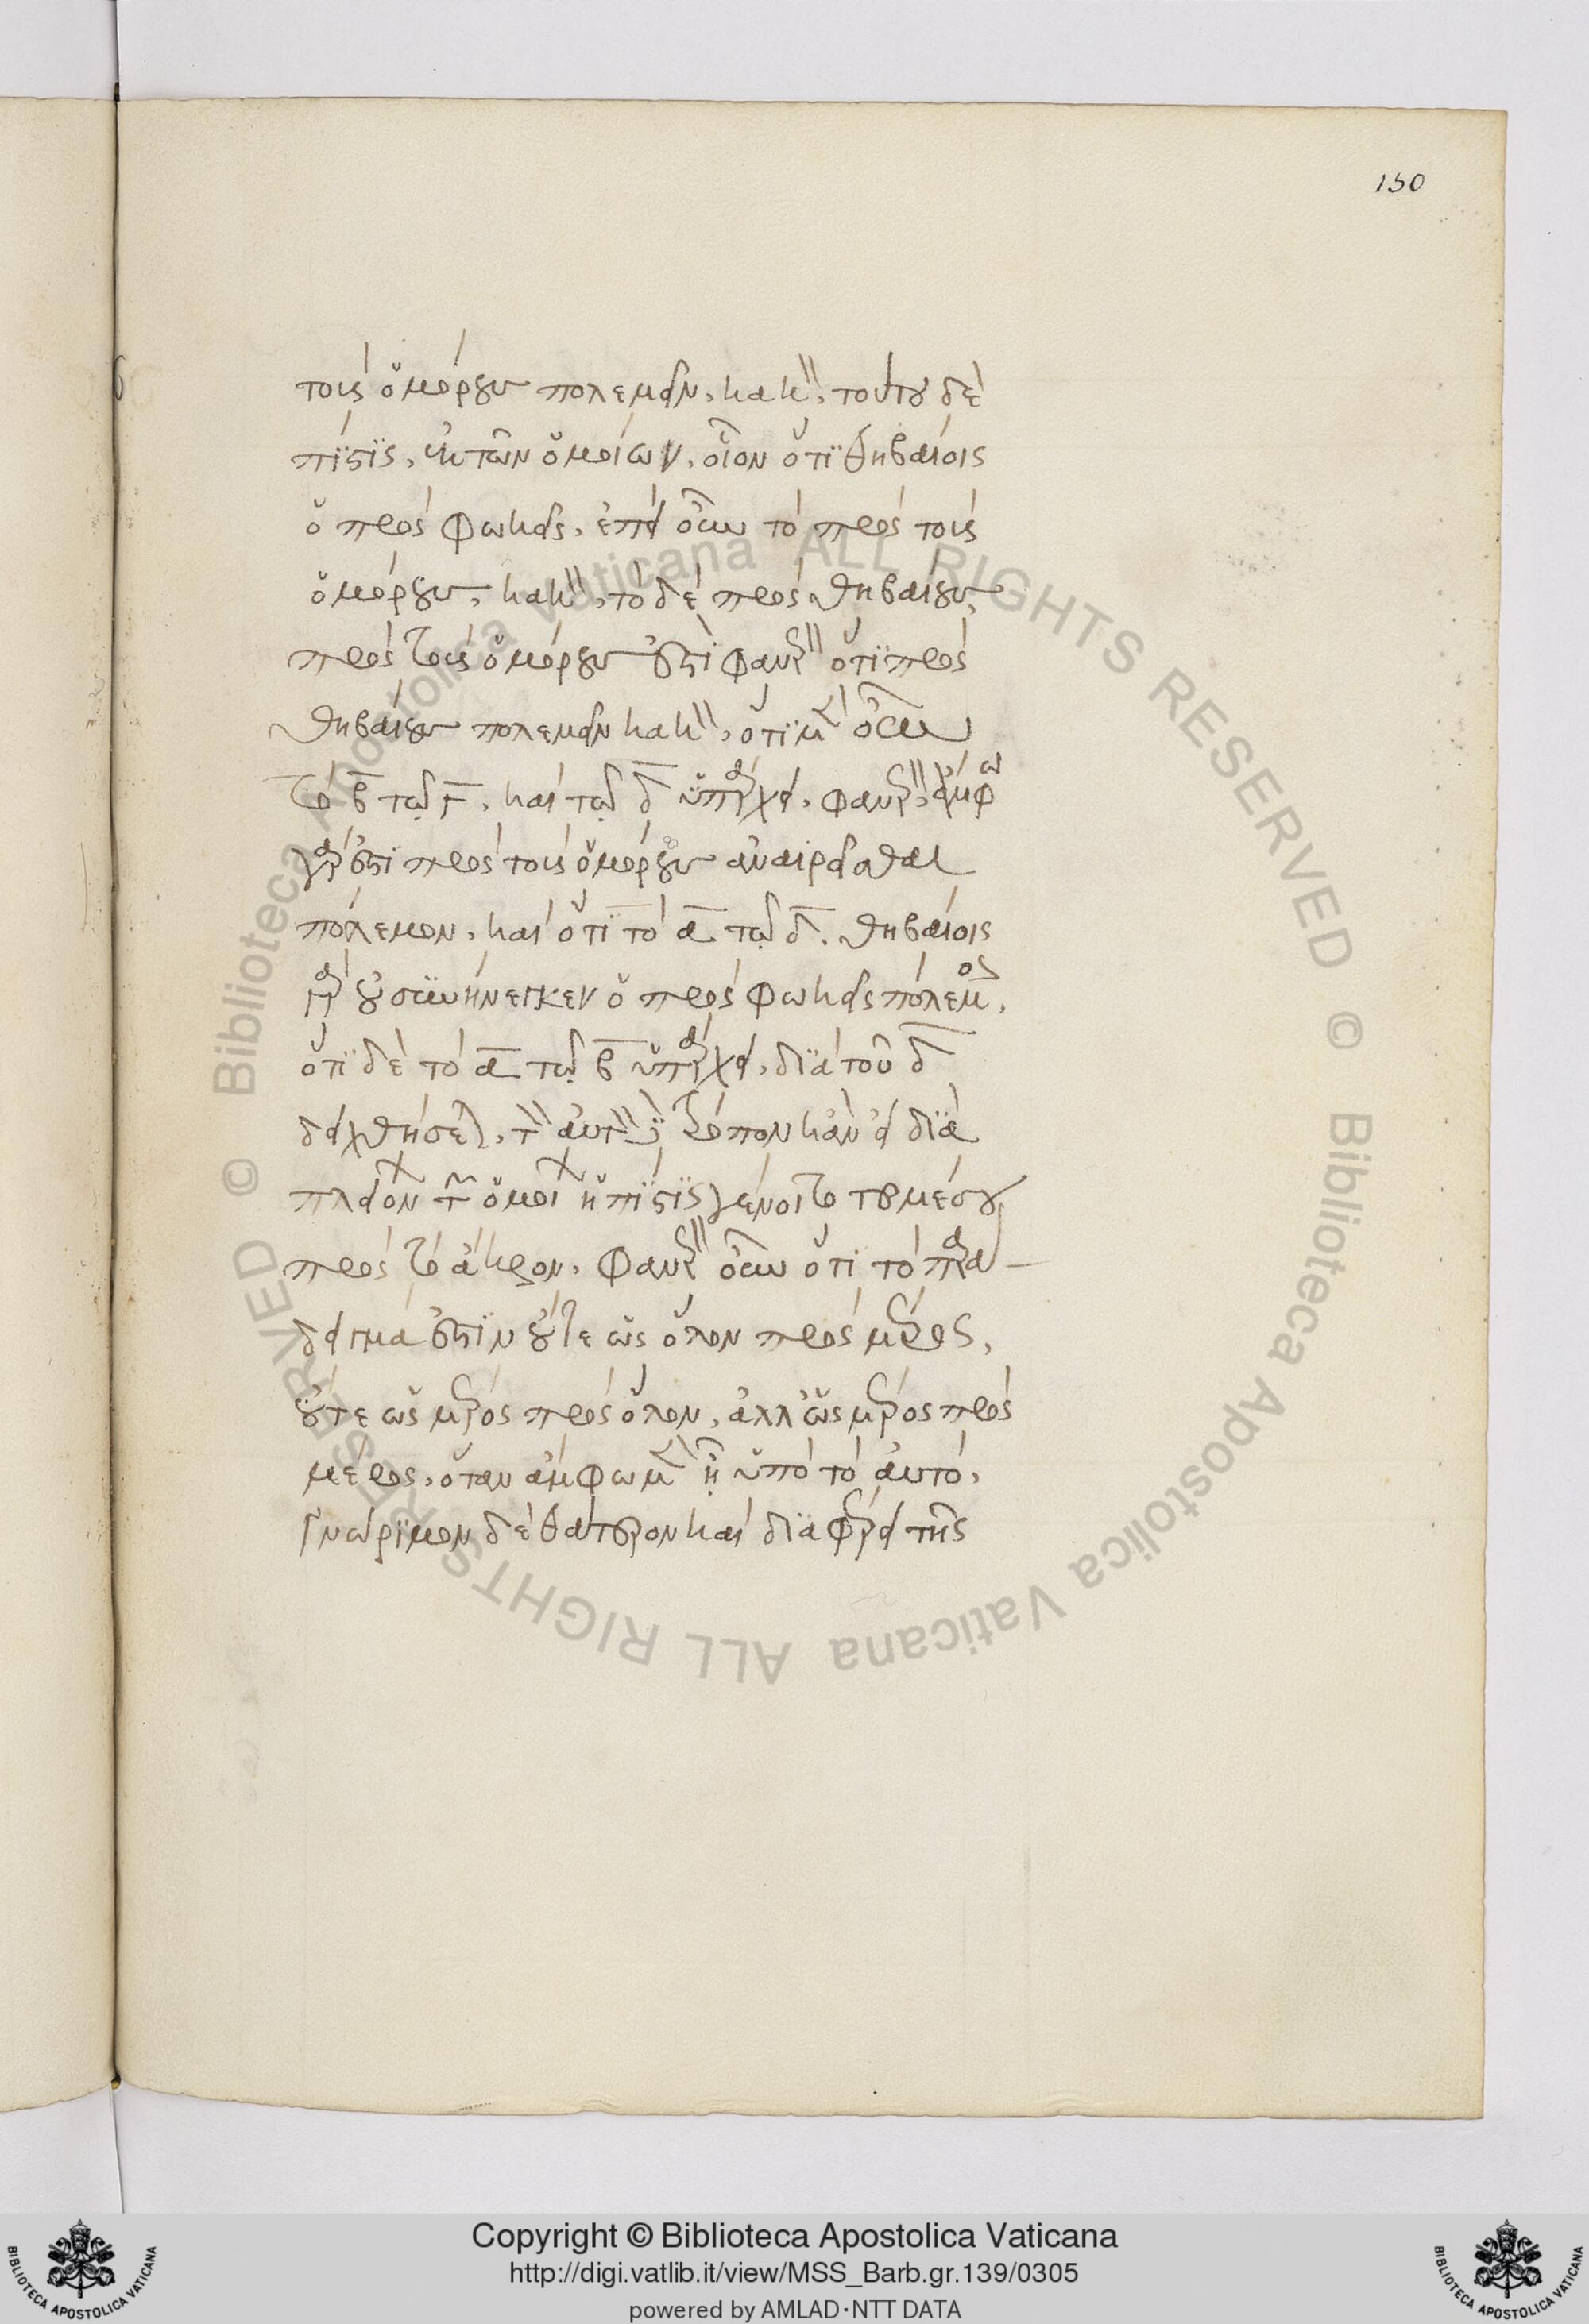 150
τοὺς ὁμόρους πολεμεῖν, κακόν, τούτου δὲ
πίστις, ἐκ τῶν ὁμοίων, οἷον ὅτι θηβαίοις
ὁ πρὸς φωκεῖς, ἐπεὶ οὖν τὸ πρὸς τοὺς
ὁμόρους, κακόν, τὸ δὲ πρὸς θηβαίους,
πρὸς τοὺς ὁμόρους ἐστὶ φανερὸν ὅτι πρὸς
θηβαίους πολεμεῖν κακόν, ὅτι μὲν οὖν
τὸ β τῷ γ, καὶ τῷ δ ὑπάρχει, φανερόν, ἄμφω
γάρ ἐστι πρὸς τοὺς ὁμόρους ἀναιρεῖσθαι
πόλεμον, καὶ ὅτι τὸ α τῷ δ, θηβαίοις
γὰρ οὐ συνήνεγκεν ὁ πρὸς φωκεῖς πόλεμος,
ὅτι δὲ τὸ α τῷ β ὑπάρχει, διὰ τοῦ δ
δειχθήσεται, τὸν αὐτὸν δὲ τρόπον κἂν εἰ διὰ
πλειόνων τῶν ὁμοίων ἡ πίστις γένοιτο του μέσου
πρὸς τὸ ἄκρον, φανερὸν οὖν ὅτι τὸ παρα-
δειγμά ἐστιν οὔτε ὡς ὅλον πρὸς μέρος,
οὔτε ὡς μέρος πρὸς ὅλον, ἀλλ' ὡς μέρος πρὸς
μέρος, ὅταν ἄμφω μὲν ᾖ ὑπὸ τὸ αὐτό,
γνώριμον δὲ θάτερον καὶ διαφέρει τῆς
© Biblioteca Apostolica Vaticana ALL RIGHTS RESERVED © Biblioteca Apostolica Vaticana ALL RIGHTS RESERVED
BIBLIOTECA APOSTOLICA VATICANA
Copyright © Biblioteca Apostolica Vaticana
http://digi.vatlib.it/view/MSS_Barb.gr.139/0305
powered by AMLAD·NTT DATA
BIBLIOTECA APOSTOLICA VATICANA